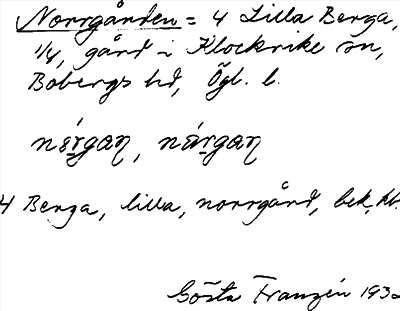 Norrgården = 4 Lilla Berga,
1/4, gård i Klockrike sn,
Bobergs hd, Ögl. l.
nórgan, nárgan
4 Berga, lilla, norrgård, bek, hb.
Gösta Franzén 193